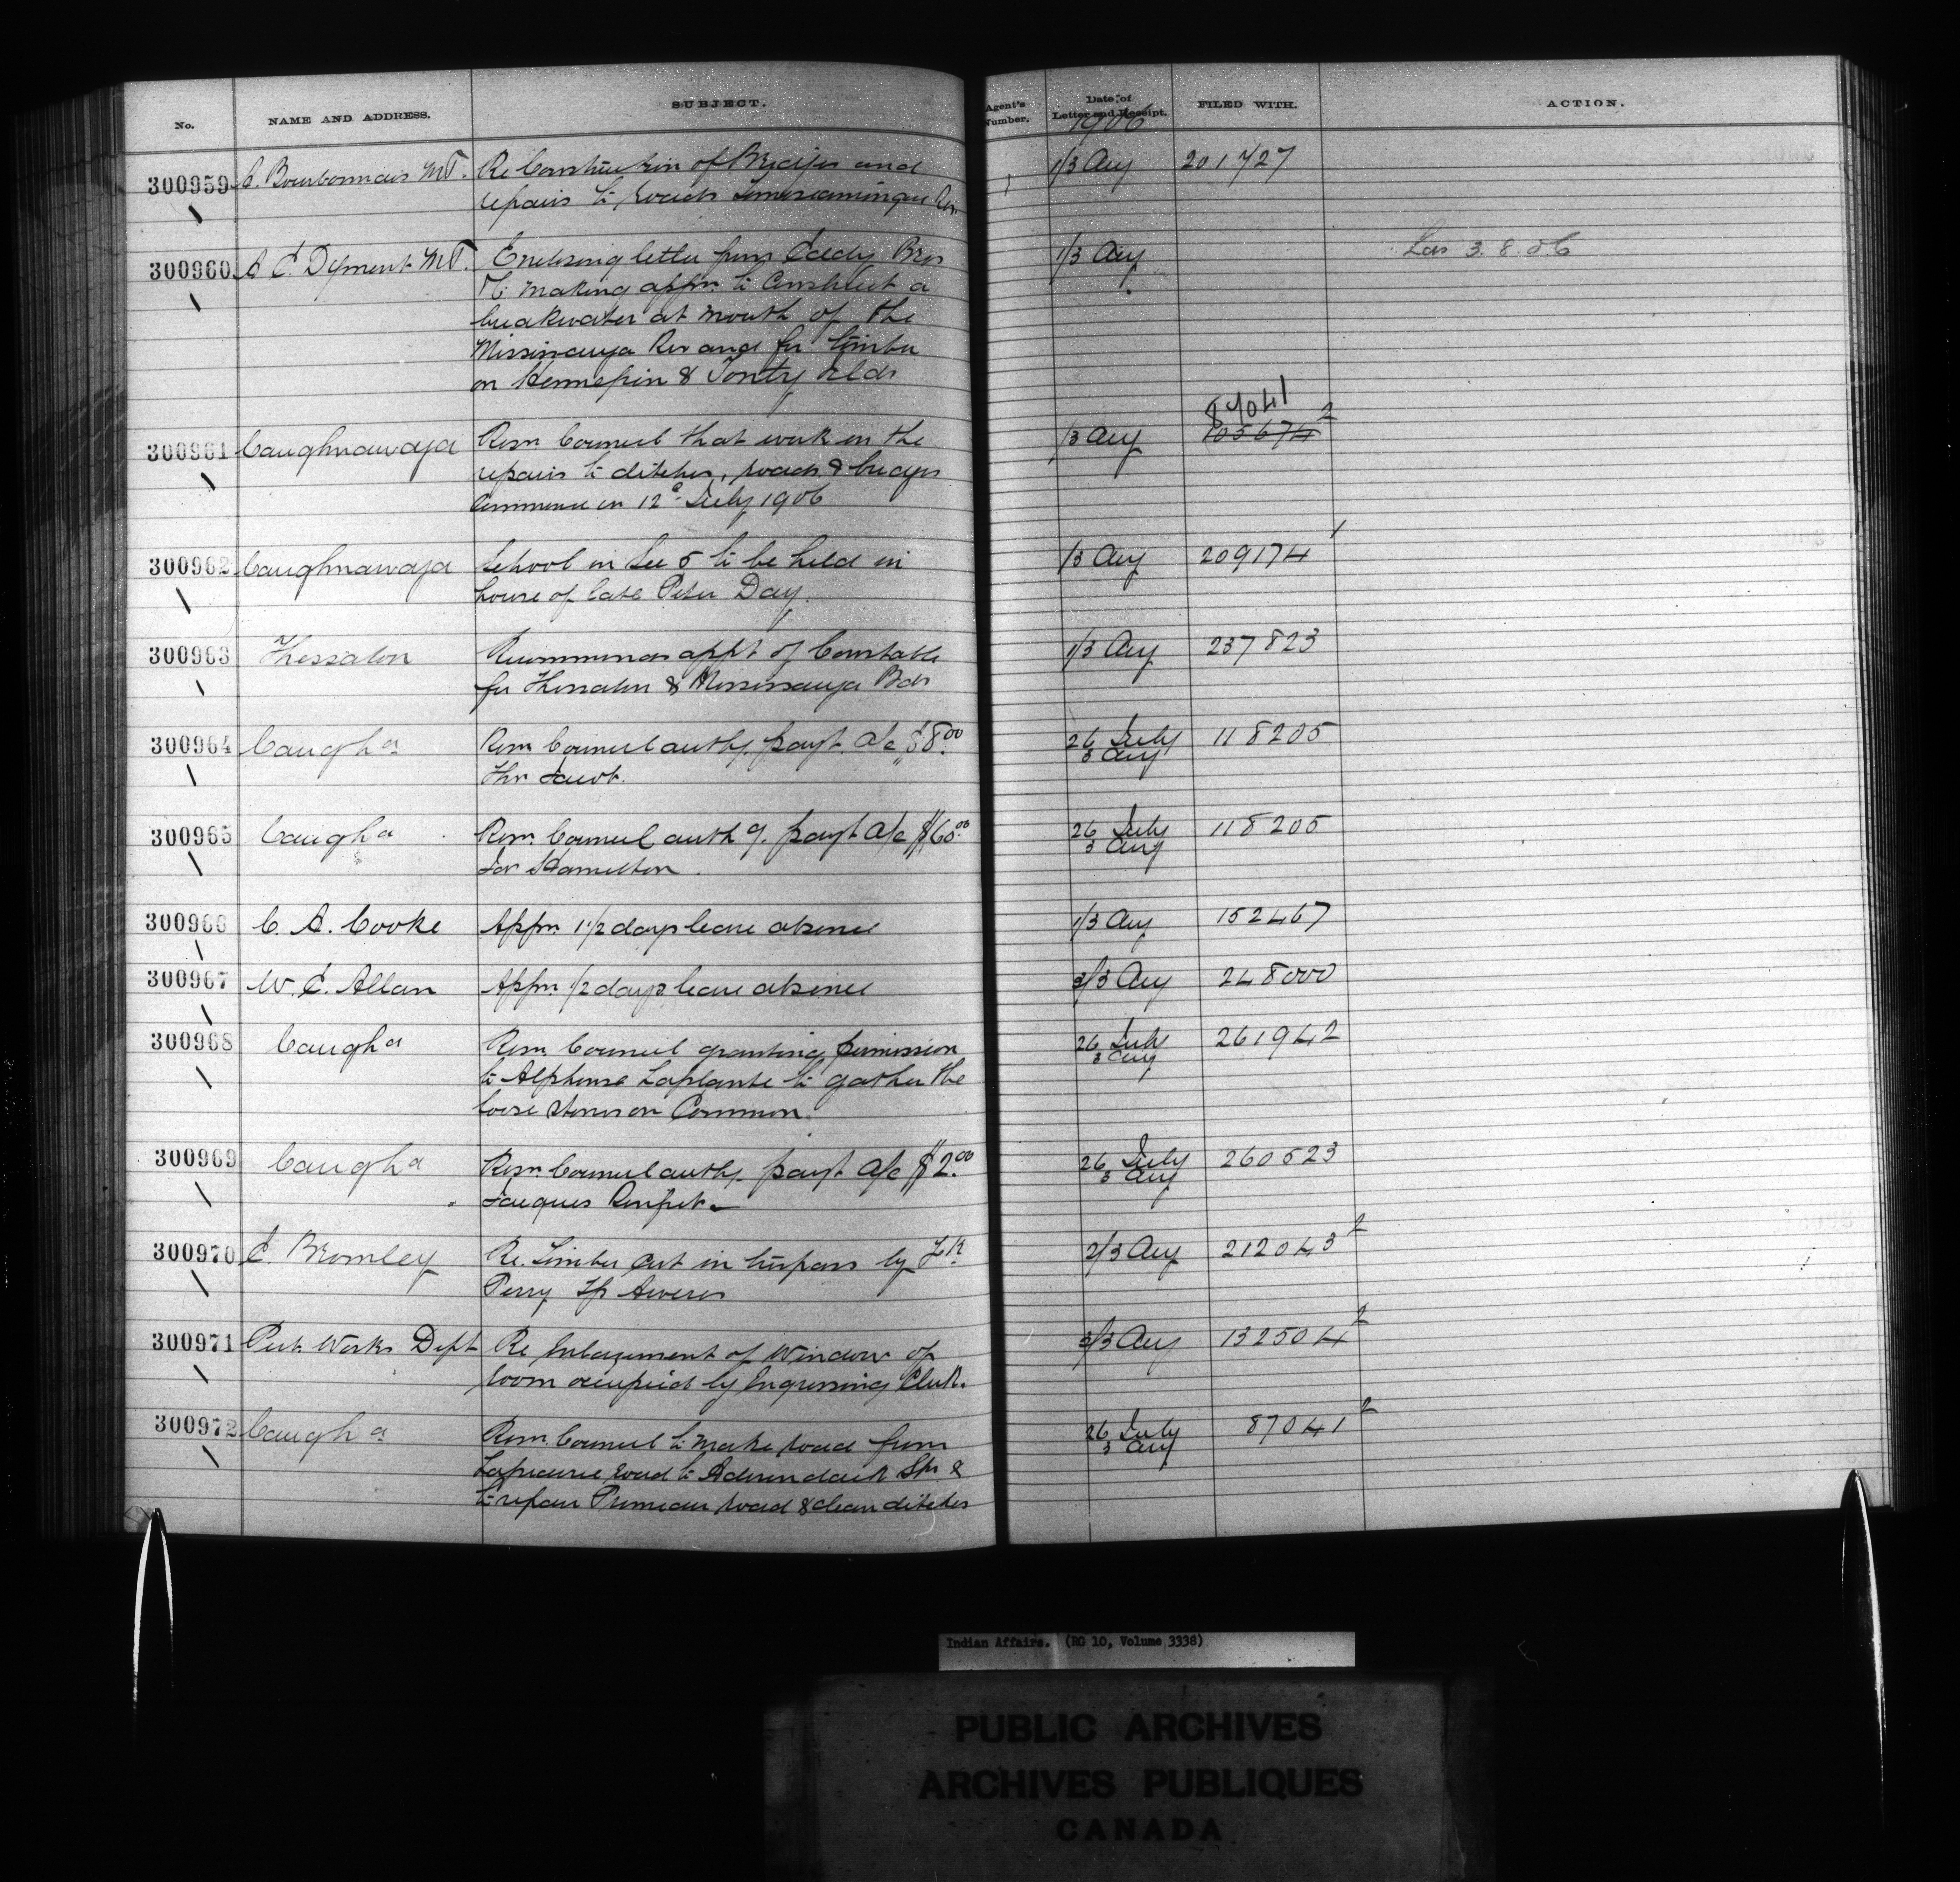 No. NAME AND ADDRESS. SUBJECT. Agent's Number. Date of Letter and Receipt. FILED WITH. ACTION.
1906
300959 A. Bourbonnais M.P. Re Construction of Bridges and 1/3 Aug 201727
repairs to roads Temiscamingue Res.
300960 A E Dyment M.P. Enclosing letter from Eddy Bros 1/3 Aug Las 3.8.06
making appn. to Construct a
breakwater at mouth of the
Mississauga Riv and for timber
on Hennepin & Tonty Islds
87041
300961 Caughnawaga Resn Council that work on the 1/3 Aug 105674 2
repairs to ditches, roads & bridges
Commence on 12 July 1906
300962 Caughnawaga School in Sec 5 to be held in 1/3 Aug 209174 1
house of late Peter Day.
300963 Thessalon Recommends appt of Constable 1/3 Aug 237823
for Thessalon & Mississauga Bds
300964 Caugha Resn Council authg. payt. a/c $8.00 26 July 118205
Thos Jacob. 3 Aug
300965 Caugha Resn. Council authg. payt a/c $60.00 26 July 118205
Jas Hamilton. 3 Aug
300966 C. A. Cooke Appn. 1 1/2 days leave absence 1/3 Aug 152467
300967 W. E. Allan Appn. 1/2 days leave absence 3/3 Aug 248000
300968 Caugha Resn. Council granting permission 26 July 261942
to Alphonse Laplante to gather the 3 Aug
loose stones on Common.
300969 Caugha Resn. Council authg. payt a/c $2.00 26 July 260523
Jacques 3 Aug
300970 E. Bromley Re. Timber Cut in trespass by 2/3 Aug 212043 2
Perry Tp Aweres
300971 Pub. Works Dept Re Enlargement of Window of 3/3 Aug 132504 2
room occupied by Engrossing Clerk.
300972 Caugha Resn. Council to make road from 26 July 87041 2
Laprairie road to Adirondack Stn & 3 Aug
to repair Primeau road & clean ditches
Indian Affairs. (RG 10, Volume 3338)
PUBLIC ARCHIVES
ARCHIVES PUBLIQUES
CANADA